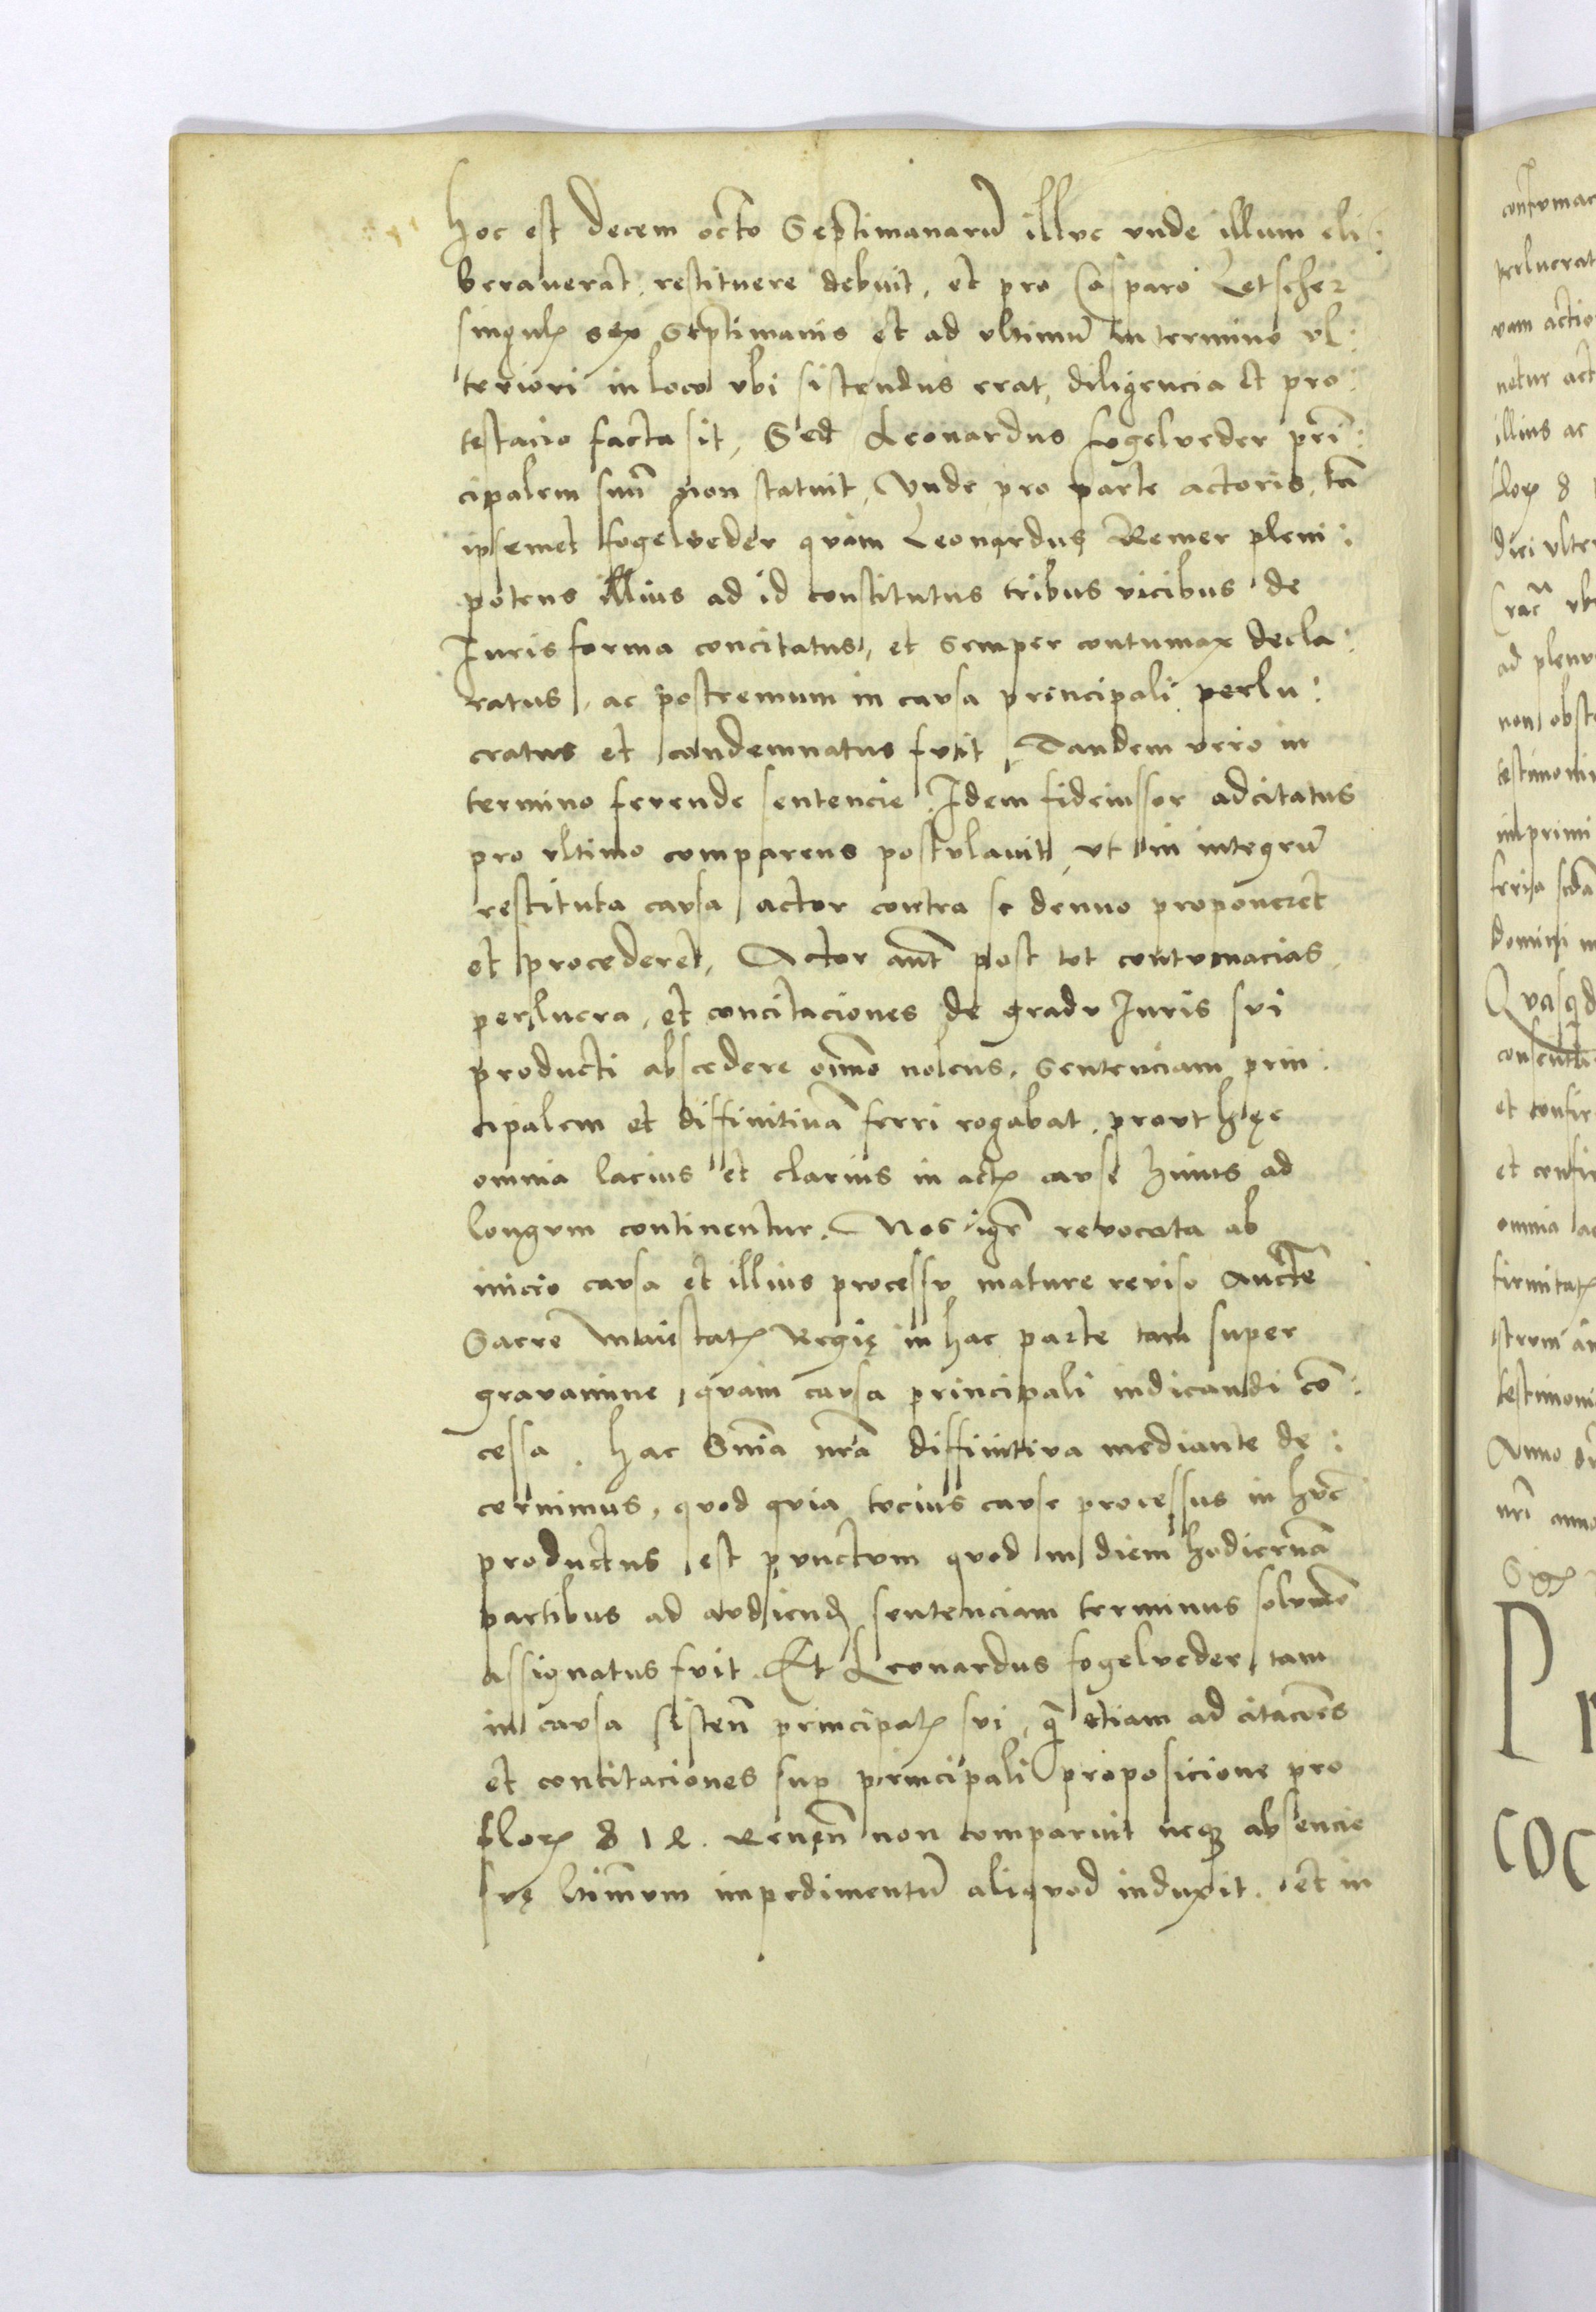 hoc est decem octo Septimanarū illuc unde illum eli:
beraverat, restituere debuit, et pro Casparo Letscher
singulꝭ sex Septimanis et ad ultimū in termino ul:
teriori in loco ubi sistendus erat, diligencia et pro:
testacio facta sit, Sed Leonardus fogelveder prī:
cipalem suū non statuit, Unde pro parte actoris, tā
ipsemet fogelveder quam Leonardus Remer pleni:
potens illius ad id constitutus tribus vicibus de
Iuris forma concitatus, et semper contumax decla:
ratus, ac postremum in causa principali perlu:
cratus et condemnatus fuit, Tandem vero in
termino ferende sentencie Idem fideiussor adcitatus
pro ultimo comparens postulavit, ut in integrū
restituta causa actor contra se denuo proponeret
et procederet, Actor aut̄ post tot contumacias
perlucra, et concitaciones de gradu Iuris sui
producti abscedere oīno nolens, sentenciam prin:
cipalem et diffinitivā ferri rogabat, prout hęc
omnia lacius et clarius in actꝭ cause huius ad
longum continentur. Nos igr̄ revocata ab
inicio causa et illius processu mature reviso Aucte
Sacre Maiestatꝭ Regię in hac parte tam super
gravamine, quam causa principali iudicandi cō:
cessa. hac Snīa nrā diffinitiva mediante de:
cernimus, quod quia tocius cause processus in hūc
productus est punctum quod in diem hodiernā
partibus ad audiendꝭ sentenciam terminus solumō
assignatus fuit. Et Leonardus fogelveder, tam
in causa sisten̄ principalꝭ sui, q̄ etiam ad citacōes
et concitaciones sup principali proposicione pro
florꝭ 812. Renen̄ non comparuit neqꝫ absencie
suę ltīmum impedimentū aliquod induxit. et in

contumac
perlucrat
vam actio
netur act
illius ac
florꝭ 8
diei ulter
ad plenu
non obst
testimoni
imprimi
feria
domini
et confir
omnia ac
firmitatꝭ
testimoni
Anno
nrī anno
P
COC